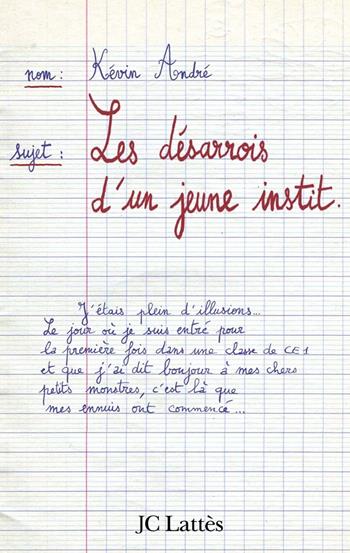 nom : Kévin André
sujet : Les désarrois
d'un jeune instit.
J'étais plein d'illusions...
Le jour où je suis entré pour
la première fois dans une classe de CE1
et que j'ai dit bonjour à mes chers
petits monstres, c'est là que
mes ennuis ont commencé...
JC Lattès